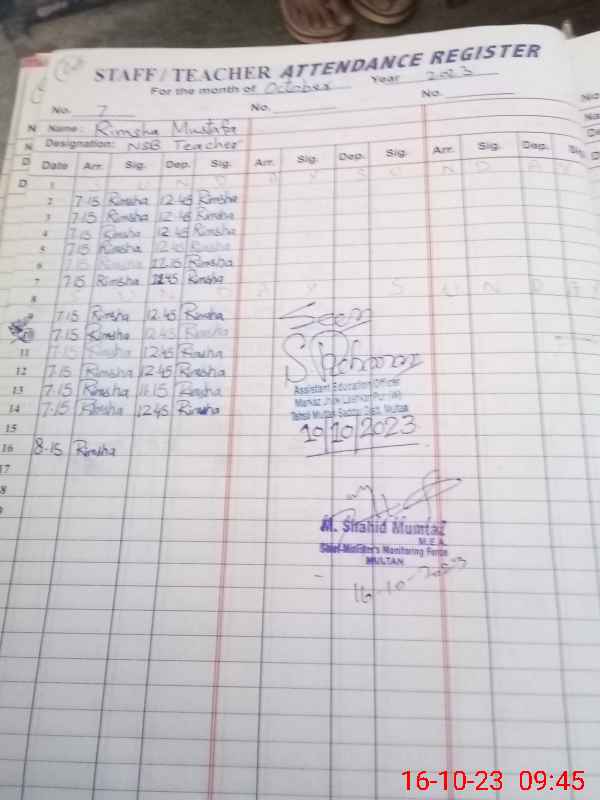 STAFF / TEACHER ATTENDANCE REGISTER
For the month of October Year 2023
No. 7 No. No.
Name: Rimsha Mustafa
Designation: NSB Teacher
Date Arr. Sig. Dep. Sig. Arr. Sig. Dep. Sig. Arr. Sig. Dep. Sig.
1 S U N D A Y S U N D A Y
2 7.15 Rimsha 12.45 Rimsha
3 7.15 Rimsha 12.45 Rimsha
4 7.15 Rimsha 12.45 Rimsha
5 7.15 Rimsha 12.45 Rimsha
6 7.15 Rimsha Rimsha
7 7.15 Rimsha 12.45 Rimsha
8 S U N D A Y S U N D A Y
7.15 Rimsha 12.45 Rimsha Seen
7.15 Rimsha 12.45 Rimsha
11 7.15 Rimsha 12.45 Rimsha
12 7.15 Rimsha 12.45 Rimsha
13 7.15 Rimsha 11.15 Rimsha
14 7.15 Rimsha 12.45 Rimsha
Assistant Education Officer
Markaz
Tehsil Multan Saddar Distt. Multan
15
10/10/2023
16 8.15 Rimsha
17
M. Shahid Mumtaz
M.E.A.
Chief Minister's Monitoring Force
MULTAN
16-10-2023
16-10-23 09:45